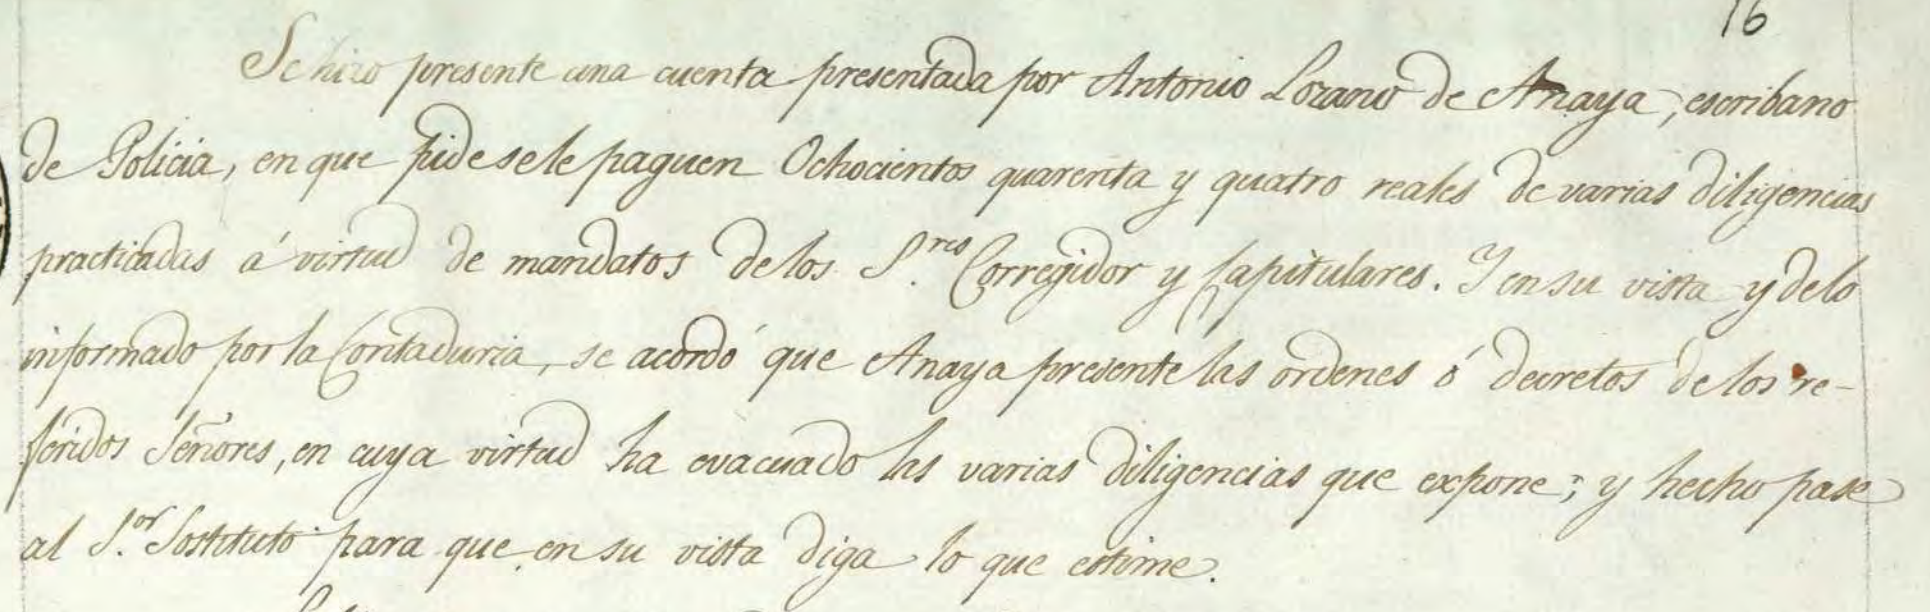 16
Se hizo presente una cuenta presentada por Antonio Lozano de Anaya, escribano
de Policia, en que pide se le paguen Ochocientos quarenta y quatro reales de varias diligencias
practicadas á virtud de mandatos de los S.res Corregidor y Capitulares. Y en su vista y de lo
informado por la Contaduria, se acordó que Anaya presente las ordenes ó decretos de los re-
feridos Señores, en cuya virtud ha evacuado las varias diligencias que expone; y hecho pase
al S.or Sostituto para que en su vista diga lo que estime.